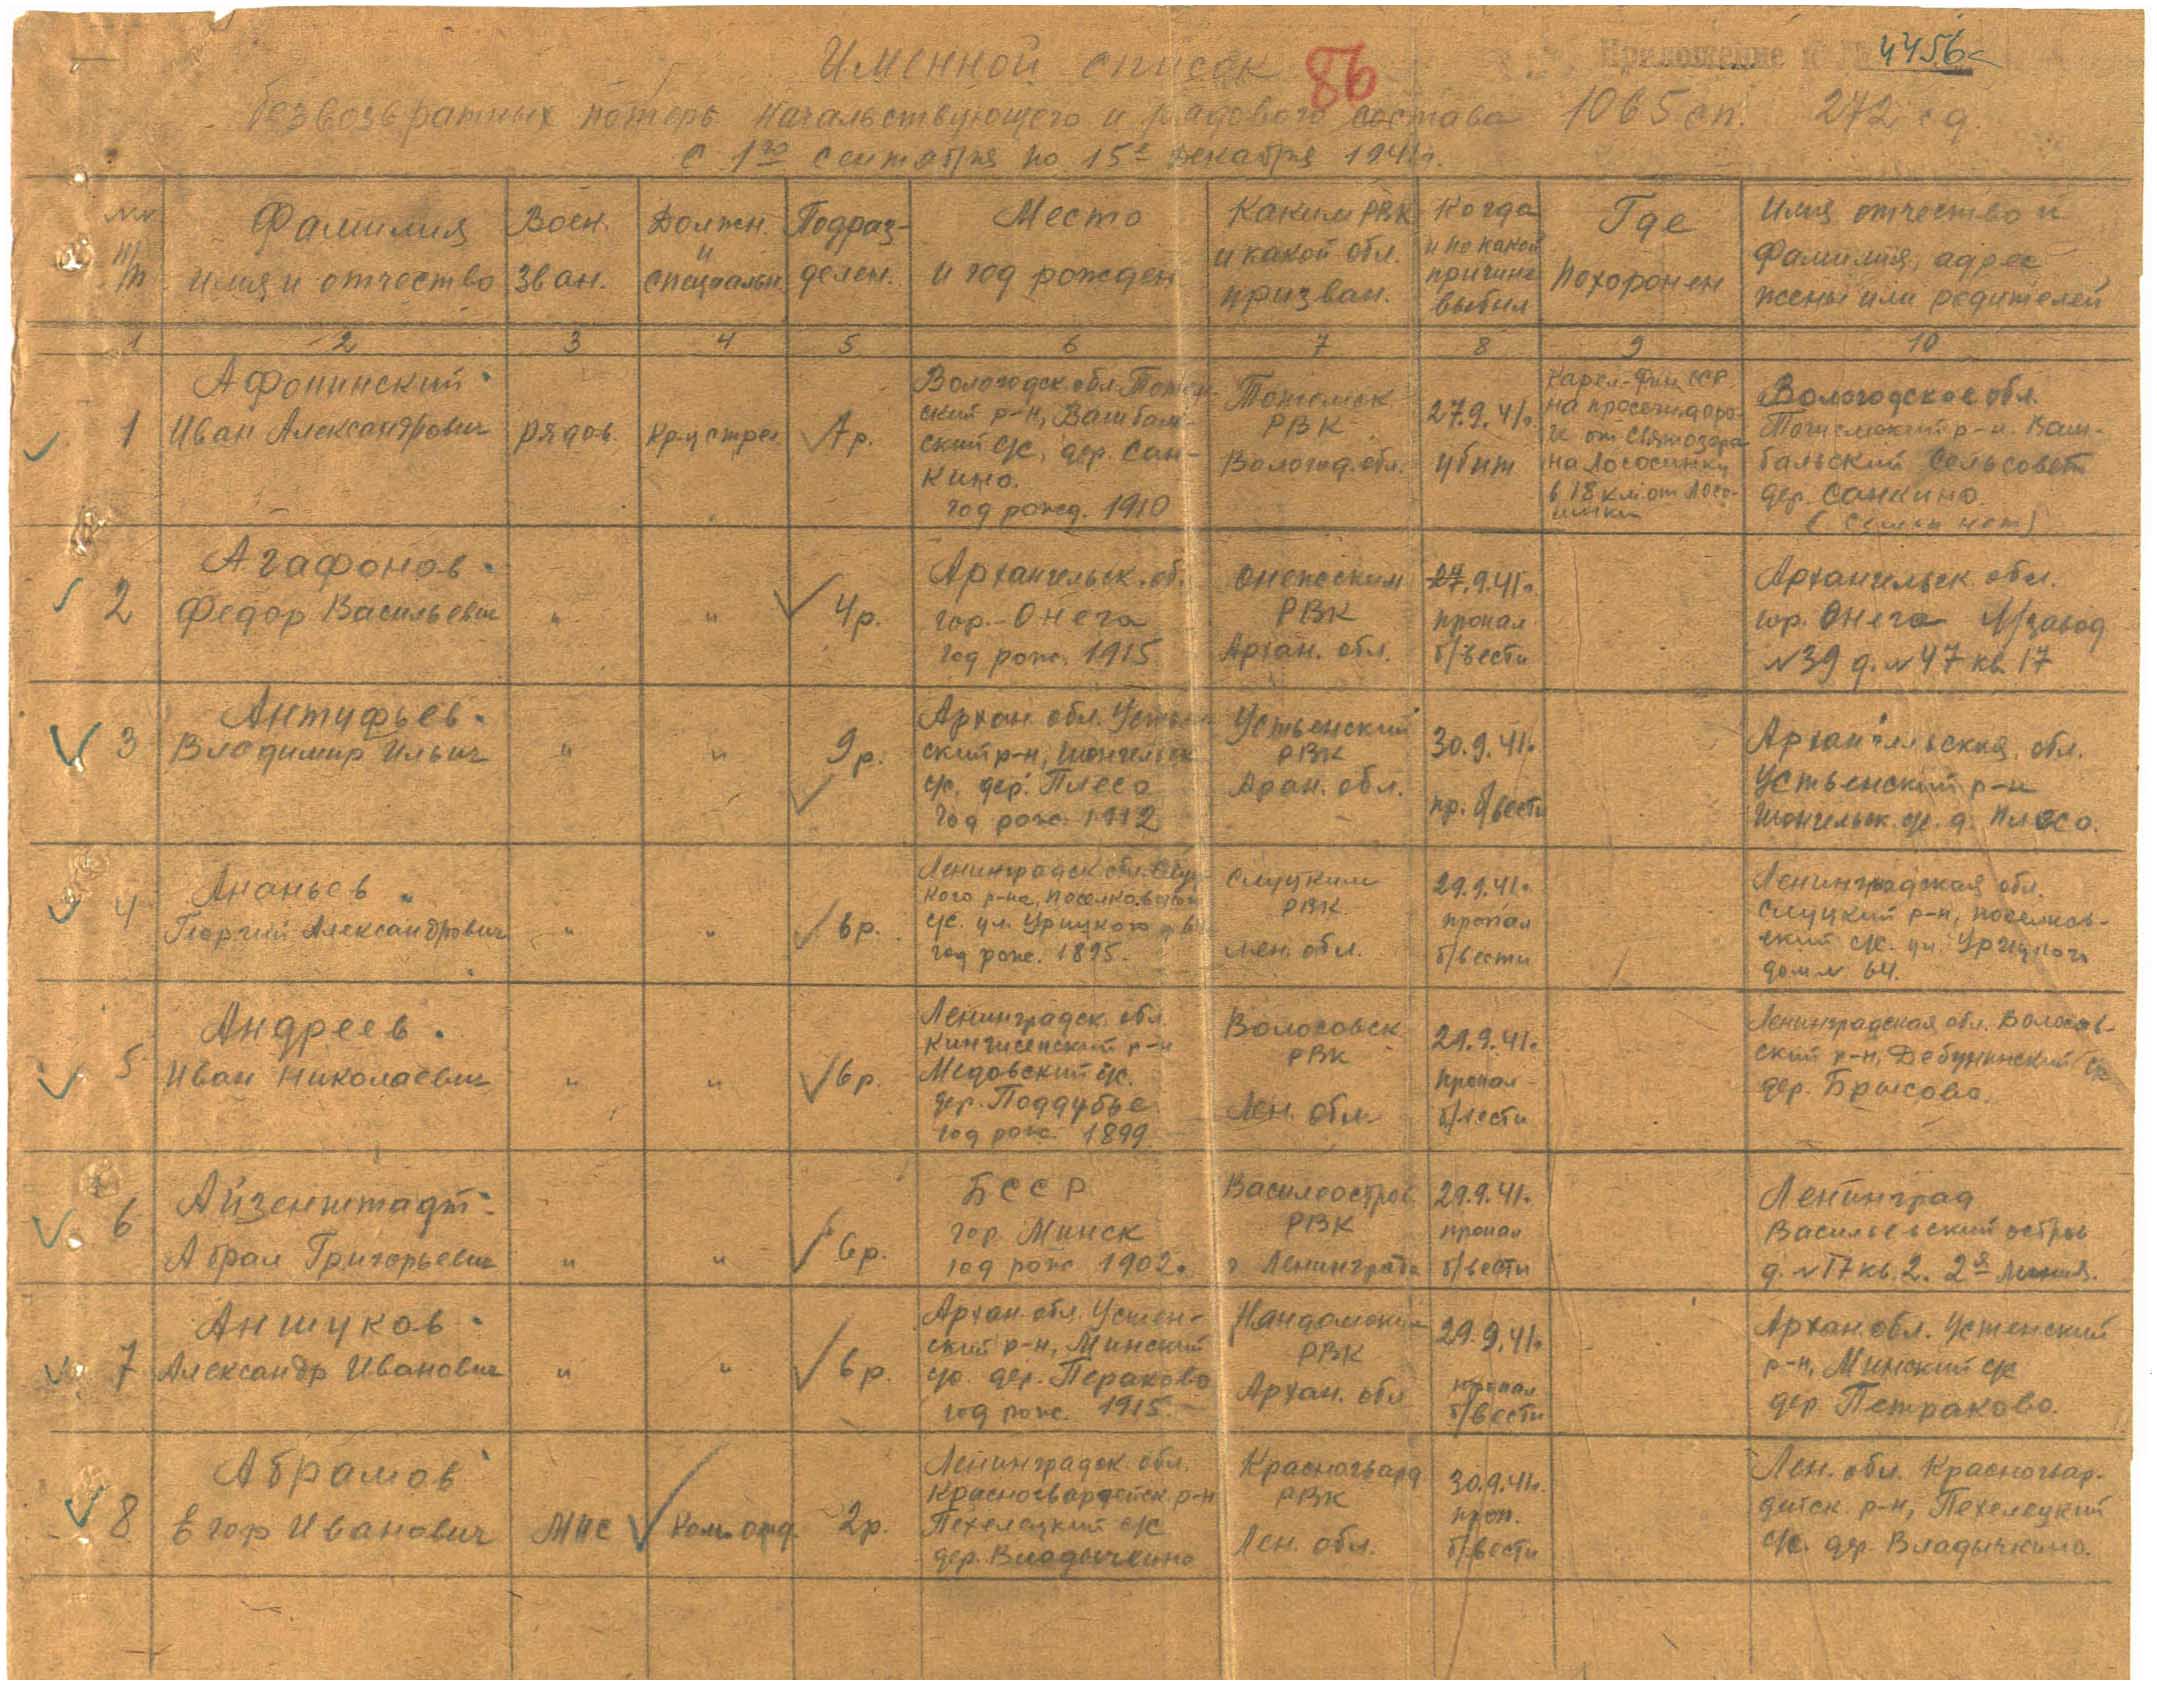 Именной список
86
Приложение к № 4456с
безвозвратных потерь начальствующего и рядового состава 1065 сп. 272 сд.
с 1го сентября по 15е декабря 1941г.
№№ п/п
Фамилия имя и отчество
Воен. зван.
Должн. и специальн.
Подраз-делен.
Место и год рожден
Каким РВК и какой обл. призван.
Когда и по какой причине выбыл
Где похоронен
Имя отчество и фамилия, адрес жены или родителей
1 2 3 4 5 6 7 8 9 10
1
Афонинский
Иван Александрович
рядов.
кр-ц стрел
7р.
Вологодск. обл. Тотем
ский р-н, Вашбаль-
ский с/с, дер. Сан-
кино.
год рожд. 1910
Тотемск
РВК
Вологод. обл.
27.9.41г.
убит
Карел-Фин ССР
на просеке доро-
ге от Святозера
на Лососинку
в 18 км от Лосо-
синки
Вологодская обл.
Тотемский р-н. Ваш-
бальский сельсовет
дер. Санкино.
(семьи нет)
2
Агафонов
Федор Васильевич
"
"
4р.
Архангельск. об.
гор. Онега
год рож. 1915
Онежским
РВК
Архан. обл.
27.9.41г.
пропал
б/вести
Архангельск. обл.
гор. Онега Л/завод
№39 д. №47 кв 17
3
Антуфьев
Владимир Ильич
"
"
9р.
Архан. обл. Устьен
ский р-н, Шангельск
с/с. дер. Плесо
год рож. 1912
Устьенский
РВК
Архан. обл.
30.9.41г.
пр. б/вести
Архангельская. обл.
Устьенский р-н
Шонгельск. с/с. д. Плесо.
4
Ананьев
Георгий Александрович
"
"
6р.
Ленинградск обл. Слуц-
кого р-на, поселковский
с/с. ул. Урицкого
год рож. 1895.
Слуцким
РВК
Лен. обл.
29.9.41г.
пропал
б/вести
Ленинградская обл.
Слуцкий р-н, поселков-
ский с/с. ул. Урицкого
дом № 64.
5
Андреев
Иван Николаевич
"
"
6р.
Ленинградск. обл.
Кингисепский р-н
Медовский с/с.
дер. Поддубье
год рож. 1899
Волосовск
РВК
Лен. обл.
29.9.41г.
пропал
б/вести
Ленинградская обл. Волосов-
ский р-н, с/с
дер. Брысово.
6
Айзенштадт
Абрам Григорьевич
"
"
6р.
БССР
гор. Минск
год рож 1902.
Василеостров.
РВК
г. Ленинграда
29.9.41г.
пропал
б/вести
Ленинград
Васильевский остров
д. №17 кв. 2. 2я Линия.
7
Аншуков
Александр Иванович
"
"
6р.
Архан. обл. Устен-
ский р-н, Минский
с/с. дер. Пераково
год рож. 1915.
Няндомский
РВК
Архан. обл
29.9.41г.
пропал
б/вести
Архан. обл. Устенский
р-н, Минский с/с
дер. Петраково.
8
Абрамов
Егор Иванович
млс
Ком. отд.
2р.
Ленинградск. обл.
Красногвардейск. р-н
Пехелецкий с/с
дер. Владычкино
Красногвард
РВК
Лен. обл.
30.9.41г.
проп.
б/вести
Лен. обл. Красногвар-
дейск. р-н, Пехелецкий
с/с. дер. Владычкино.